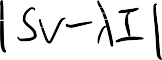 |SV-λI|